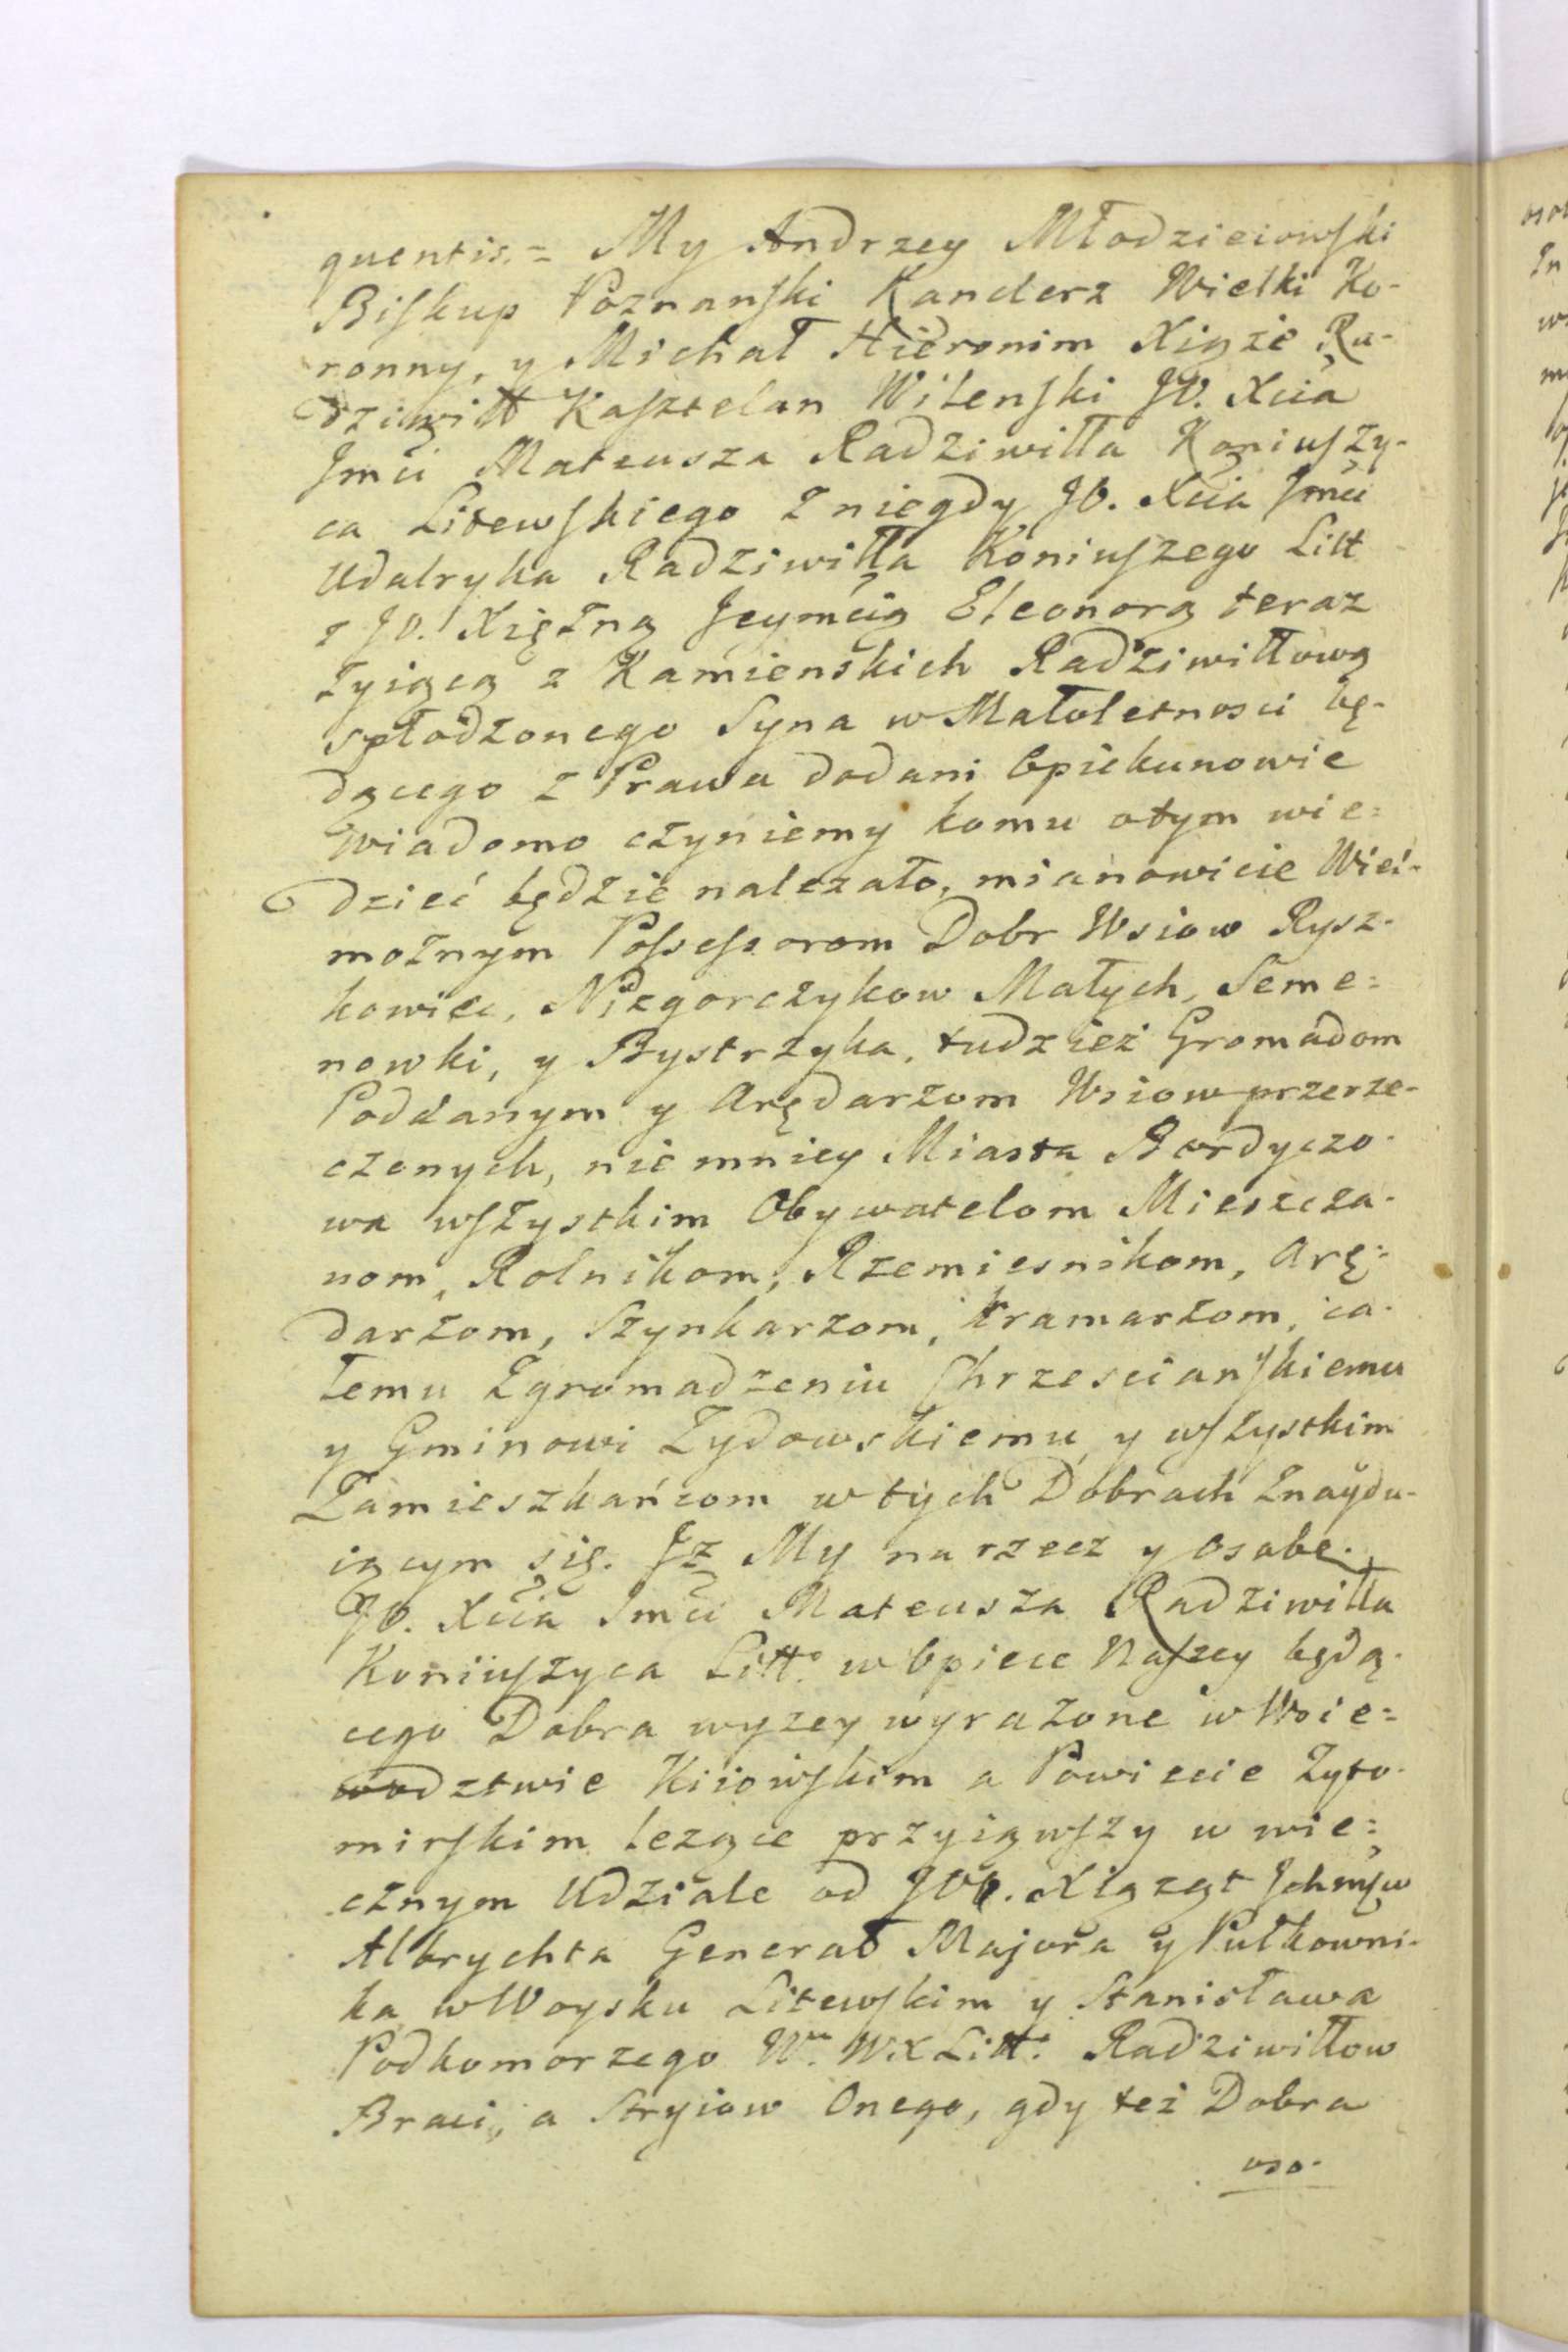 quentis. = My Andrzey Młodzieiowski
Biskup Poznanski Kanclerz Wielki Ko-
ronny, y Michał Hieronim Xiąże Ra-
dziwiłł Kasztelan Wilenski JO. Xcia
Jmci Mateusza Radziwiłła Koniuszy-
ca Litewskiego z niegdy JO. Xcia Jmci
Udalryka Radziwiłła Koniuszego Litt
z JO. Xiężną Jeymcią Eleonorą teraz
żyiącą z Kamienskich Radziwiłłową
spłodzonego Syna w Małoletnosci bę-
dącego z Prawa dodani Opiekunowie
Wiadomo czyniemy komu otym wie=
dzieć będzie nalezało, mianowicie Wiel-
możnym Possessorom Dobr Wsiow Rysz-
kowiec, Nizgorczykow Małych, Seme=
nowki, y Bystrzyka, tudzież Gromadom
Poddanym y Arędarzom Wsiow przerze-
czonych, nie mniey Miasta Berdyczo-
wa wszystkim Obywatelom Mieszcza-
nom, Rolnikom, Rzemiesnikom, Arę=
darzom, Szynkarzom, Kramarzom, ca-
łemu Zgromadzeniu Chrzescianskiemu
y Gminowi Zydowskiemu y wszystkim
Zamieszkańcom w tych Dobrach Znaydu-
iącym się. Jż My na rzecz y osobe
JO. Xcia Jmci Mateusza Radziwiłła
Koniuszyca Litt. w Opiece Naszey będą-
cego Dobra wyzey wyrażone w Woie=
wodztwie Kiiowskim a Powiecie Zyto-
mirskim lezące przyiąwszy w wie=
cznym Udziale od JOO. Xiążąt Jchmciow
Albrychta Generał Majora y Pułkowni-
ka w Woysku Litewskim y Stanisława
Podkomorzego Wo. W.X. Litt. Radziwiłłow
Braci, a Stryiow Onego, gdy też Dobra
oso-